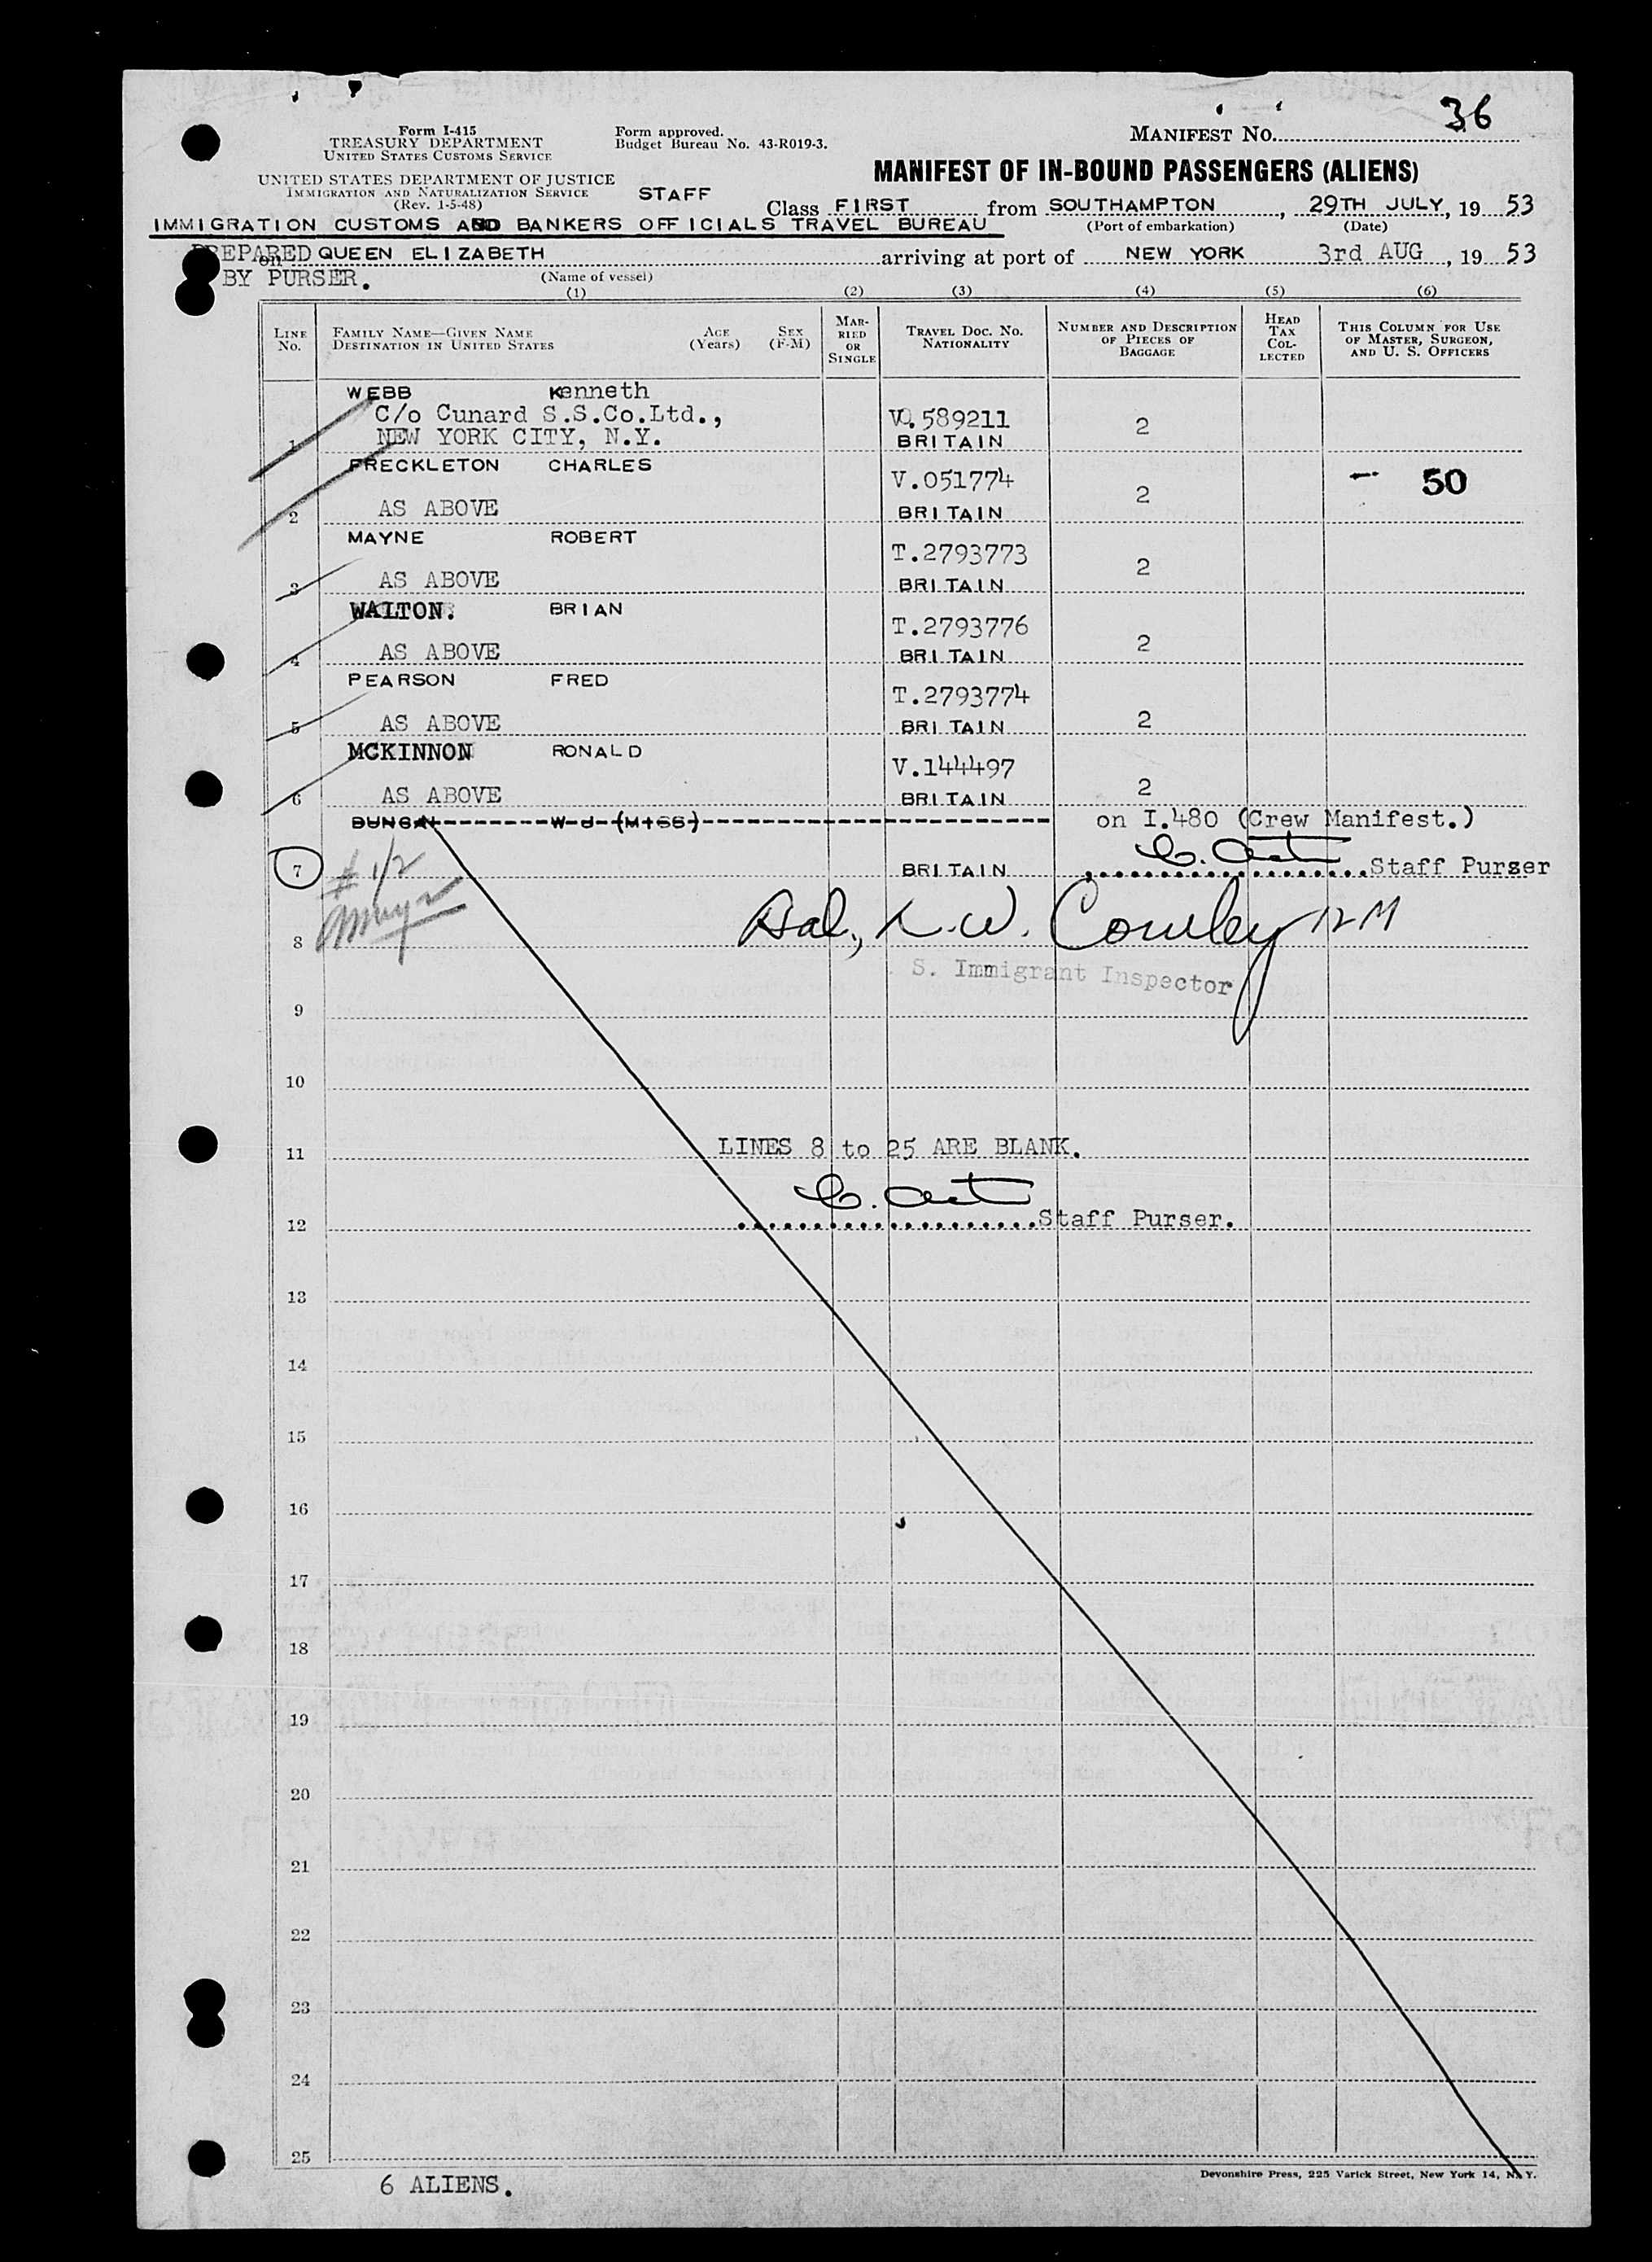 36
Form I-415
TREASURY DEPARTMENT
UNITED STATES CUSTOMS SERVICE
Form approved.
Budget Bureau No. 43-R019-3.
MANIFEST NO.
UNITED STATES DEPARTMENT OF JUSTICE
IMMIGRATION AND NATURALIZATION SERVICE
(Rev. 1-5-48)
MANIFEST OF IN-BOUND PASSENGERS (ALIENS)
STAFF
Class FIRST from SOUTHAMPTON, 29TH JULY, 19 53
(Port of embarkation) (Date)
IMMIGRATION CUSTOMS AND BANKERS OFFICIALS TRAVEL BUREAU
PREPARED on QUEEN ELIZABETH arriving at port of NEW YORK 3rd AUG, 19 53
BY PURSER. (Name of vessel)
(1) (2) (3) (4) (5) (6)
LINE NO. FAMILY NAME—GIVEN NAME DESTINATION IN UNITED STATES AGE (Years) SEX (F-M) MARRIED OR SINGLE TRAVEL DOC. NO. NATIONALITY NUMBER AND DESCRIPTION OF PIECES OF BAGGAGE HEAD TAX COLLECTED THIS COLUMN FOR USE OF MASTER, SURGEON, AND U. S. OFFICERS
WEBB Kenneth
C/o Cunard S.S.Co.Ltd., V.589211 2
1 NEW YORK CITY, N.Y. BRITAIN
FRECKLETON CHARLES
V.051774 2 - 50
2 AS ABOVE BRITAIN
MAYNE ROBERT
T.2793773 2
3 AS ABOVE BRITAIN
WALTON. BRIAN
T.2793776 2
4 AS ABOVE BRITAIN
PEARSON FRED
T.2793774 2
5 AS ABOVE BRITAIN
MCKINNON RONALD
V.144497 2
6 AS ABOVE BRITAIN
W J (MISS) on I.480 (Crew Manifest.)
7 # 1/2 BRITAIN Staff Purser
8 L.W. Cowley
S. Immigrant Inspector
9
10
11 LINES 8 to 25 ARE BLANK.
12 Staff Purser.
13
14
15
16
17
18
19
20
21
22
23
24
25
6 ALIENS.
Devonshire Press, 225 Varick Street, New York 14, N. Y.